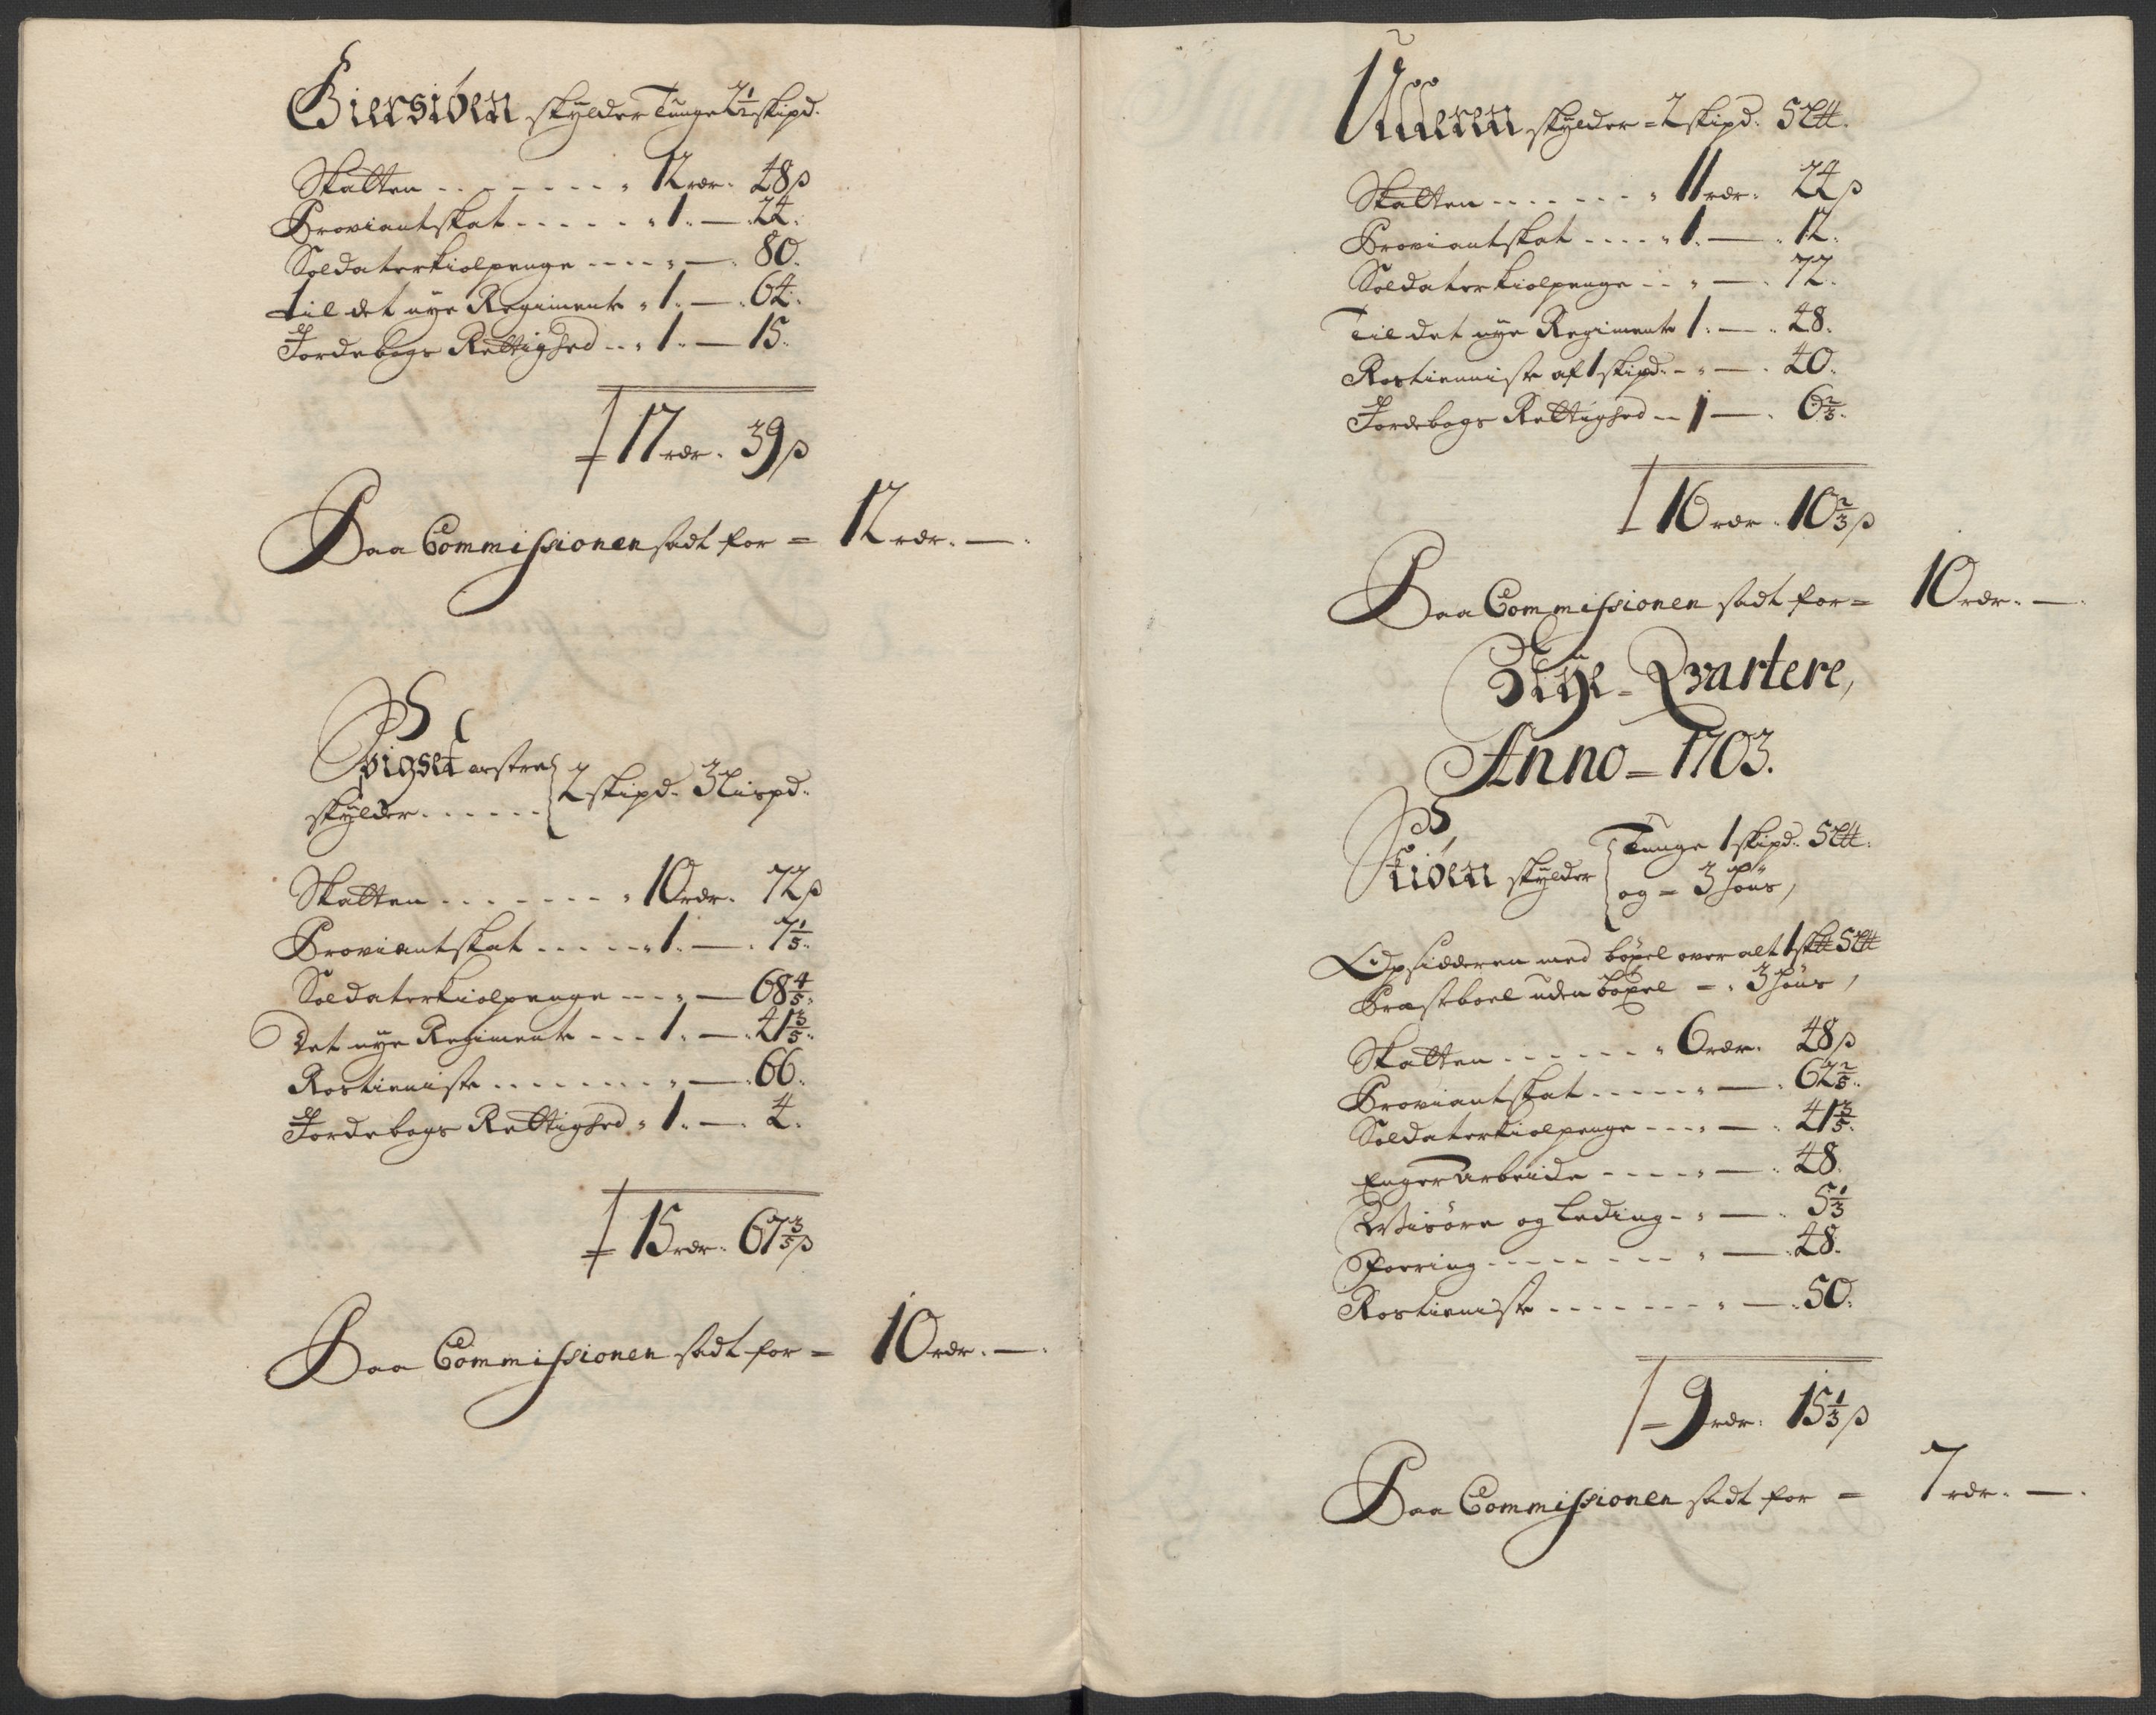 Giersiöen skylder Tunge 2½ skipd.
Skatten - - - - - - - 12 rdr. 48 ß
Proviantskat - - - - - 1. — 24.
Soldaterkiolpenge - - - - — 80.
Til det nye Regimente 1. — 64.
Jordebogs Rettighed - - 1. — 15.
17 rdr. 39 ß
Paa Commissionen sadt for = 12 rdr. —.
Sigset östre
skylder - - - - - - 2 skipd. 3 Lispd.
Skatten - - - - - - - 10 rdr. 72 ß
Proviantskat - - - - - 1. — 7 1/5.
Soldaterkiolpenge - - - — 68 4/5.
Det nye Regimente - - - 1. — 41 3/5.
Rostieniste - - - - - - - — 66.
Jordebogs Rettighed 1. — 4.
15 rdr. 67 3/5 ß
Paa Commissionen sadt for = 10 rdr. —.
Ulleren skylder = 2 skipd. 5 L℔.
Skatten - - - - - - - 11 rdr. 24 ß
Proviantskat - - - - 1. — 12.
Soldaterkiolpenge - - — 72.
Til det nye Regimente 1. — 48.
Rostienniste af 1 skipd. - — 40.
Jordebogs Rettighed - - 1 — 6 2/3.
16 rdr. 10 2/3 ß
Paa Commissionen sadt for = 10 rdr. —.
Qvartere,
Anno = 1703.
skylder Tunge 1 skipd. 5 L℔.
og = 3 Höns,
Opsidderen med böxel over alt 1 sk℔ 5 L℔
Præsteboel uden böxel = 3 Höns,
Skatten - - - - - - 6 rdr. 48 ß
Proviantskat - - - - - — 62 2/5.
Soldaterkiolpenge - - - — 41 3/5.
Enger Arbeide - - - - — 48.
Wisöre og Leding - — 5 1/3
Foering - - - - - - - — 48.
Rostieniste - - - - - - - — 50.
= 9 rdr. 15 1/3 ß
Paa Commissionen sadt for = 7 rdr. —.